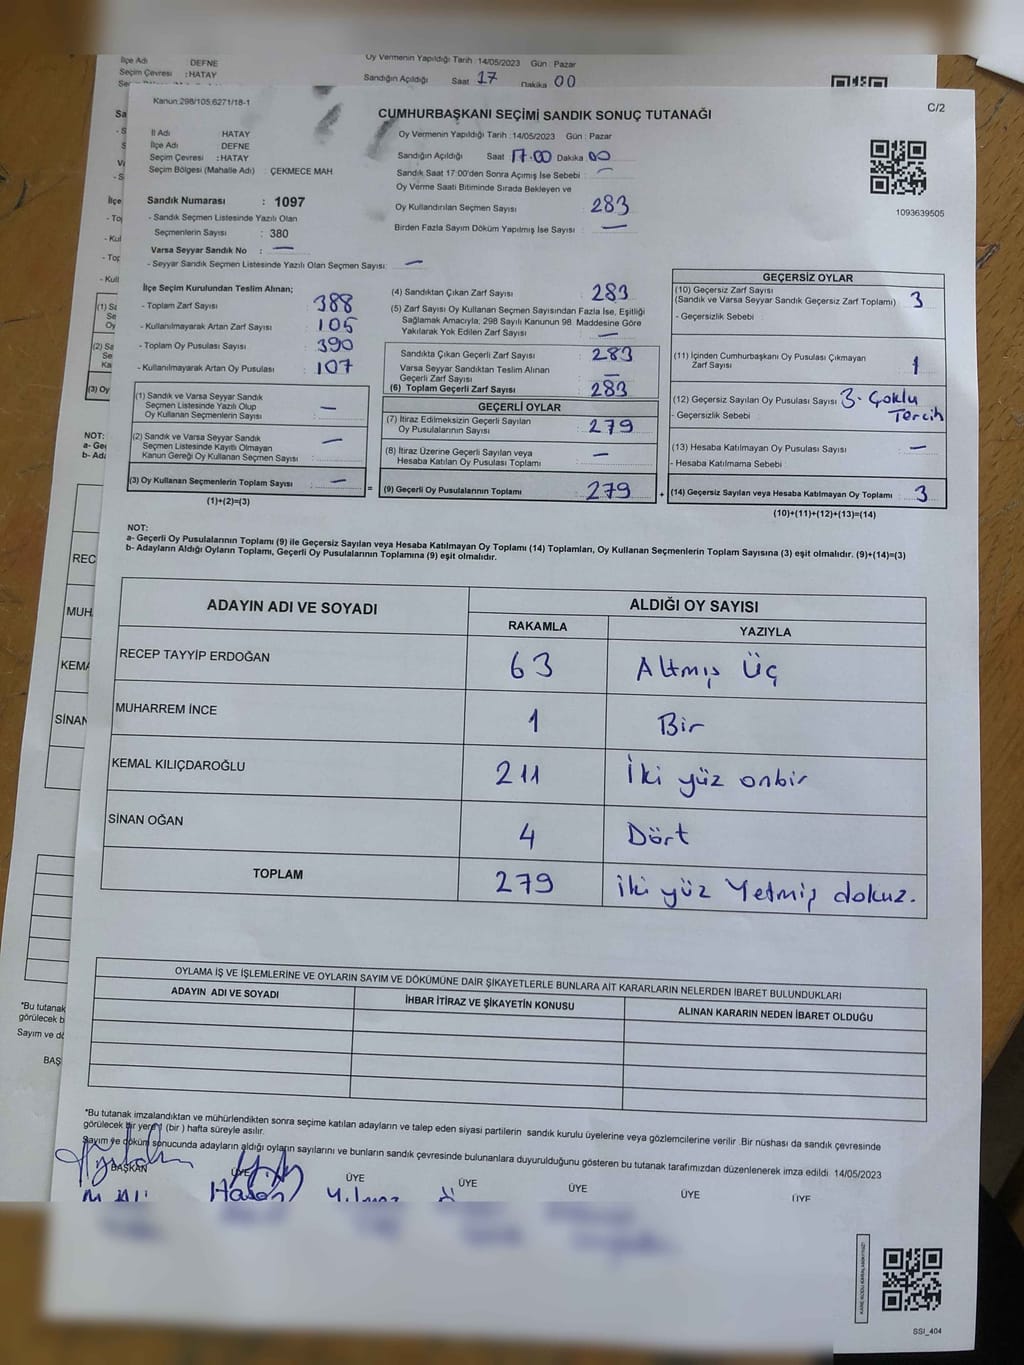 İlçe Adı DEFNE
Seçim Çevresi : HATAY
Oy Vermenin Yapıldığı Tarih : 14/05/2023 Gün : Pazar
Sandığın Açıldığı Saat 17 Dakika 00
Kanun:298/105,6271/18-1
CUMHURBAŞKANI SEÇİMİ SANDIK SONUÇ TUTANAĞI
C/2
İl Adı HATAY
İlçe Adı DEFNE
Seçim Çevresi : HATAY
Seçim Bölgesi (Mahalle Adı) : ÇEKMECE MAH
Oy Vermenin Yapıldığı Tarih :14/05/2023 Gün : Pazar
Sandığın Açıldığı Saat 17.00 Dakika 00
Sandık Saat 17:00'den Sonra Açımış İse Sebebi : —
Oy Verme Saati Bitiminde Sırada Bekleyen ve
Oy Kullandırılan Seçmen Sayısı : 283
Birden Fazla Sayım Döküm Yapılmış İse Sayısı : —
1093639505
Sandık Numarası : 1097
- Sandık Seçmen Listesinde Yazılı Olan
Seçmenlerin Sayısı : 380
Varsa Seyyar Sandık No : —
- Seyyar Sandık Seçmen Listesinde Yazılı Olan Seçmen Sayısı: —
İlçe Seçim Kurulundan Teslim Alınan;
- Toplam Zarf Sayısı : 388
- Kullanılmayarak Artan Zarf Sayısı : 105
- Toplam Oy Pusulası Sayısı : 390
- Kullanılmayarak Artan Oy Pusulası : 107
(1) Sandık ve Varsa Seyyar Sandık
Seçmen Listesinde Yazılı Olup
Oy Kullanan Seçmenlerin Sayısı : —
(2) Sandık ve Varsa Seyyar Sandık
Seçmen Listesinde Kayıtlı Olmayan
Kanun Gereği Oy Kullanan Seçmen Sayısı : —
(3) Oy Kullanan Seçmenlerin Toplam Sayısı : —
(1)+(2)=(3)
(4) Sandıktan Çıkan Zarf Sayısı : 283
(5) Zarf Sayısı Oy Kullanan Seçmen Sayısından Fazla İse, Eşitliği
Sağlamak Amacıyla; 298 Sayılı Kanunun 98. Maddesine Göre
Yakılarak Yok Edilen Zarf Sayısı : —
Sandıkta Çıkan Geçerli Zarf Sayısı : 283
Varsa Seyyar Sandıktan Teslim Alınan
Geçerli Zarf Sayısı : —
(6) Toplam Geçerli Zarf Sayısı : 283
GEÇERLİ OYLAR
(7) İtiraz Edilmeksizin Geçerli Sayılan
Oy Pusulalarının Sayısı : 279
(8) İtiraz Üzerine Geçerli Sayılan veya
Hesaba Katılan Oy Pusulası Toplamı : —
(9) Geçerli Oy Pusulalarının Toplamı : 279
GEÇERSİZ OYLAR
(10) Geçersiz Zarf Sayısı
(Sandık ve Varsa Seyyar Sandık Geçersiz Zarf Toplamı) : 3
- Geçersizlik Sebebi :
(11) İçinden Cumhurbaşkanı Oy Pusulası Çıkmayan
Zarf Sayısı : 1
(12) Geçersiz Sayılan Oy Pusulası Sayısı : 3- Çoklu
- Geçersizlik Sebebi : Tercih
(13) Hesaba Katılmayan Oy Pusulası Sayısı : —
- Hesaba Katılmama Sebebi :
(14) Geçersiz Sayılan veya Hesaba Katılmayan Oy Toplamı : 3
(10)+(11)+(12)+(13)=(14)
NOT:
a- Geçerli Oy Pusulalarının Toplamı (9) ile Geçersiz Sayılan veya Hesaba Katılmayan Oy Toplamı (14) Toplamları, Oy Kullanan Seçmenlerin Toplam Sayısına (3) eşit olmalıdır. (9)+(14)=(3)
b- Adayların Aldığı Oyların Toplamı, Geçerli Oy Pusulalarının Toplamına (9) eşit olmalıdır.
ADAYIN ADI VE SOYADI ALDIĞI OY SAYISI
RAKAMLA YAZIYLA
RECEP TAYYİP ERDOĞAN 63 Altmış Üç
MUHARREM İNCE 1 Bir
KEMAL KILIÇDAROĞLU 211 İki yüz onbir
SİNAN OĞAN 4 Dört
TOPLAM 279 iki yüz Yetmiş dokuz.
OYLAMA İŞ VE İŞLEMLERİNE VE OYLARIN SAYIM VE DÖKÜMÜNE DAİR ŞİKAYETLERLE BUNLARA AİT KARARLARIN NELERDEN İBARET BULUNDUKLARI
ADAYIN ADI VE SOYADI İHBAR İTİRAZ VE ŞİKAYETİN KONUSU ALINAN KARARIN NEDEN İBARET OLDUĞU
*Bu tutanak imzalandıktan ve mühürlendikten sonra seçime katılan adayların ve talep eden siyasi partilerin sandık kurulu üyelerine veya gözlemcilerine verilir .Bir nüshası da sandık çevresinde
görülecek bir yere 1 (bir ) hafta süreyle asılır.
Sayım ve döküm sonucunda adayların aldığı oyların sayılarını ve bunların sandık çevresinde bulunanlara duyurulduğunu gösteren bu tutanak tarafımızdan düzenlenerek imza edildi. 14/05/2023
BAŞKAN ÜYE ÜYE ÜYE ÜYE ÜYE ÜYE
Hasan Yılmaz
SSI_404